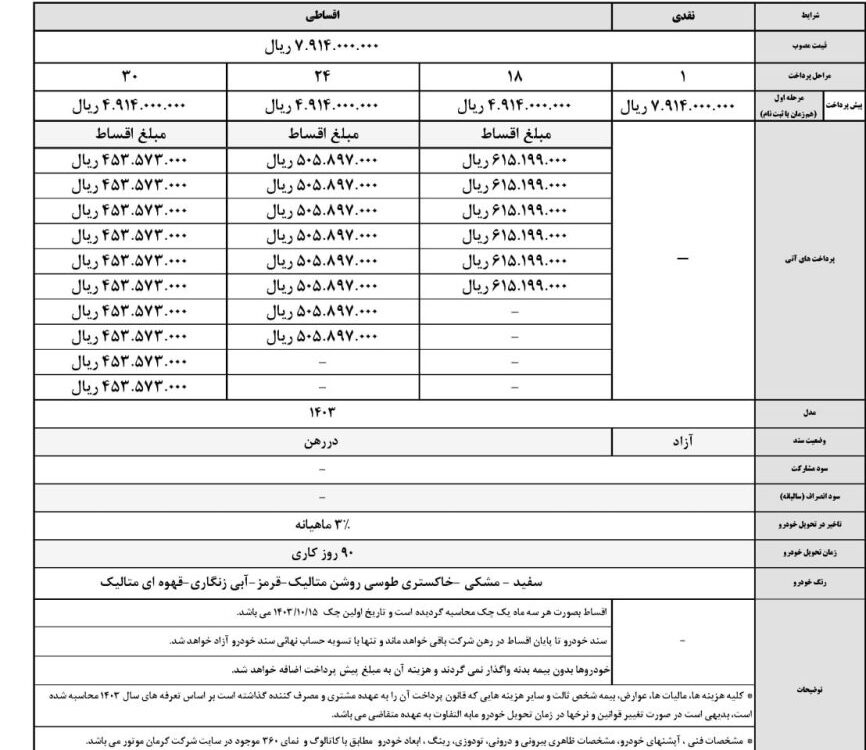 شرایط نقدی اقساطی
قیمت مصوب ۷.۹۱۴.۰۰۰.۰۰۰ ریال
مراحل پرداخت ۱ ۱۸ ۲۴ ۳۰
پیش پرداخت مرحله اول (هم زمان با ثبت نام) ۷.۹۱۴.۰۰۰.۰۰۰ ریال ۴.۹۱۴.۰۰۰.۰۰۰ ریال ۴.۹۱۴.۰۰۰.۰۰۰ ریال ۴.۹۱۴.۰۰۰.۰۰۰ ریال
مبلغ اقساط مبلغ اقساط مبلغ اقساط
۶۱۵.۱۹۹.۰۰۰ ریال ۵۰۵.۸۹۷.۰۰۰ ریال ۴۵۳.۵۷۳.۰۰۰ ریال
۶۱۵.۱۹۹.۰۰۰ ریال ۵۰۵.۸۹۷.۰۰۰ ریال ۴۵۳.۵۷۳.۰۰۰ ریال
۶۱۵.۱۹۹.۰۰۰ ریال ۵۰۵.۸۹۷.۰۰۰ ریال ۴۵۳.۵۷۳.۰۰۰ ریال
۶۱۵.۱۹۹.۰۰۰ ریال ۵۰۵.۸۹۷.۰۰۰ ریال ۴۵۳.۵۷۳.۰۰۰ ریال
پرداخت های آتی – ۶۱۵.۱۹۹.۰۰۰ ریال ۵۰۵.۸۹۷.۰۰۰ ریال ۴۵۳.۵۷۳.۰۰۰ ریال
۶۱۵.۱۹۹.۰۰۰ ریال ۵۰۵.۸۹۷.۰۰۰ ریال ۴۵۳.۵۷۳.۰۰۰ ریال
– ۵۰۵.۸۹۷.۰۰۰ ریال ۴۵۳.۵۷۳.۰۰۰ ریال
– ۵۰۵.۸۹۷.۰۰۰ ریال ۴۵۳.۵۷۳.۰۰۰ ریال
– – ۴۵۳.۵۷۳.۰۰۰ ریال
– – ۴۵۳.۵۷۳.۰۰۰ ریال
مدل ۱۴۰۳
وضعیت سند آزاد دررهن
سود مشارکت –
سود انصراف (سالیانه) –
تاخیر در تحویل خودرو ۳٪ ماهیانه
زمان تحویل خودرو ۹۰ روز کاری
رنگ خودرو سفید - مشکی -خاکستری طوسی روشن متالیک-قرمز-آبی زنگاری-قهوه ای متالیک
اقساط بصورت هر سه ماه یک چک محاسبه گردیده است و تاریخ اولین چک ۱۴۰۳/۱۰/۱۵ می باشد.
– سند خودرو تا پایان اقساط در رهن شرکت باقی خواهد ماند و تنها با تسویه حساب نهائی سند خودرو آزاد خواهد شد.
خودروها بدون بیمه بدنه واگذار نمی گردند و هزینه آن به مبلغ پیش پرداخت اضافه خواهد شد.
توضیحات
* کلیه هزینه ها، مالیات ها، عوارض، بیمه شخص ثالث و سایر هزینه هایی که قانون پرداخت آن را به عهده مشتری و مصرف کننده گذاشته است بر اساس تعرفه های سال ۱۴۰۳ محاسبه شده
است، بدیهی است در صورت تغییر قوانین و نرخها در زمان تحویل خودرو مابه التفاوت به عهده متقاضی می باشد.
* مشخصات فنی ، آپشنهای خودرو، مشخصات ظاهری بیرونی و درونی، تودوزی، رینگ ، ابعاد خودرو مطابق با کاتالوگ و نمای ۳۶۰ موجود در سایت شرکت کرمان موتور می باشد.